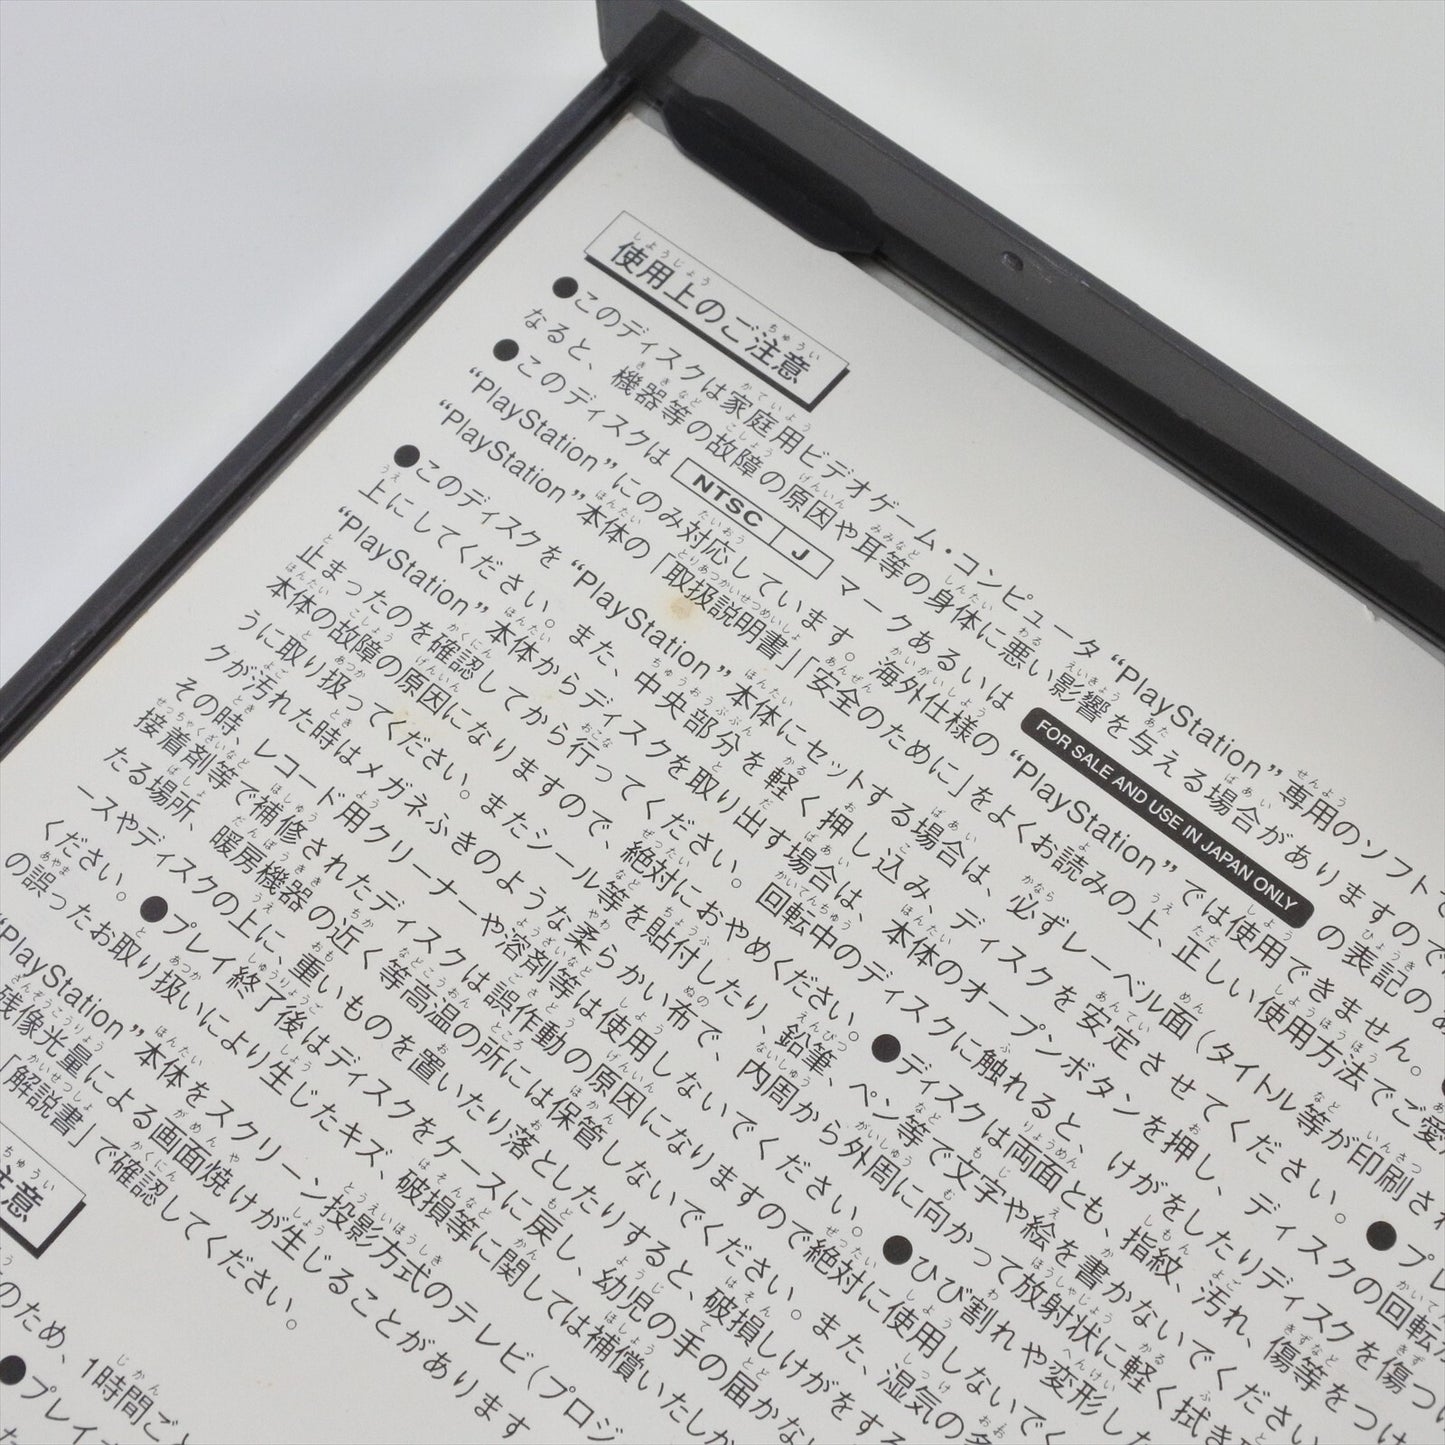 使用上のご注意
●このディスクは家庭用ビデオゲーム・コンピュータ“PlayStation”専用のソフトで
なると、機器等の故障の原因や耳等の身体に悪い影響を与える場合がありますので
●このディスクは NTSC J マークあるいは FOR SALE AND USE IN JAPAN ONLY の表記の
“PlayStation”にのみ対応しています。海外仕様の“PlayStation”では使用できません。
“PlayStation”本体の「取扱説明書」「安全のために」をよくお読みの上、正しい使用方法でご愛
●このディスクを“PlayStation”本体にセットする場合は、必ずレーベル面（タイトル等が印刷さ
上にしてください。また、中央部分を軽く押し込み、ディスクを安定させてください。●プレ
“PlayStation”本体からディスクを取り出す場合は、本体のオープンボタンを押し、ディスクの回転が
止まったのを確認してから行ってください。回転中のディスクに触れると、けがをしたりディスクを傷つけ
本体の故障の原因になりますので、絶対におやめください。●ディスクは両面とも、指紋、汚れ、傷等をつけ
うに取り扱ってください。またシール等を貼付したり、鉛筆、ペン等で文字や絵を書かないでください
クが汚れた時はメガネふきのような柔らかい布で、内周から外周に向かって放射状に軽く拭き
その時、レコード用クリーナーや溶剤等は使用しないでください。●ひび割れや変形した
接着剤等で補修されたディスクは誤作動の原因になりますので絶対に使用しないでく
たる場所、暖房機器の近く等高温の所には保管しないでください。また、湿気の多
ースやディスクの上に、重いものを置いたり落としたりすると、破損しけがをする
ください。●プレイ終了後はディスクをケースに戻し、幼児の手の届かな
の誤ったお取り扱いにより生じたキズ、破損等に関しては補償いたしか
“PlayStation”本体をスクリーン投影方式のテレビ（プロジ
残像光量による画面焼けが生じることがあります
「解説書」で確認してください。
注意
のため、1時間ごと
●プレイ